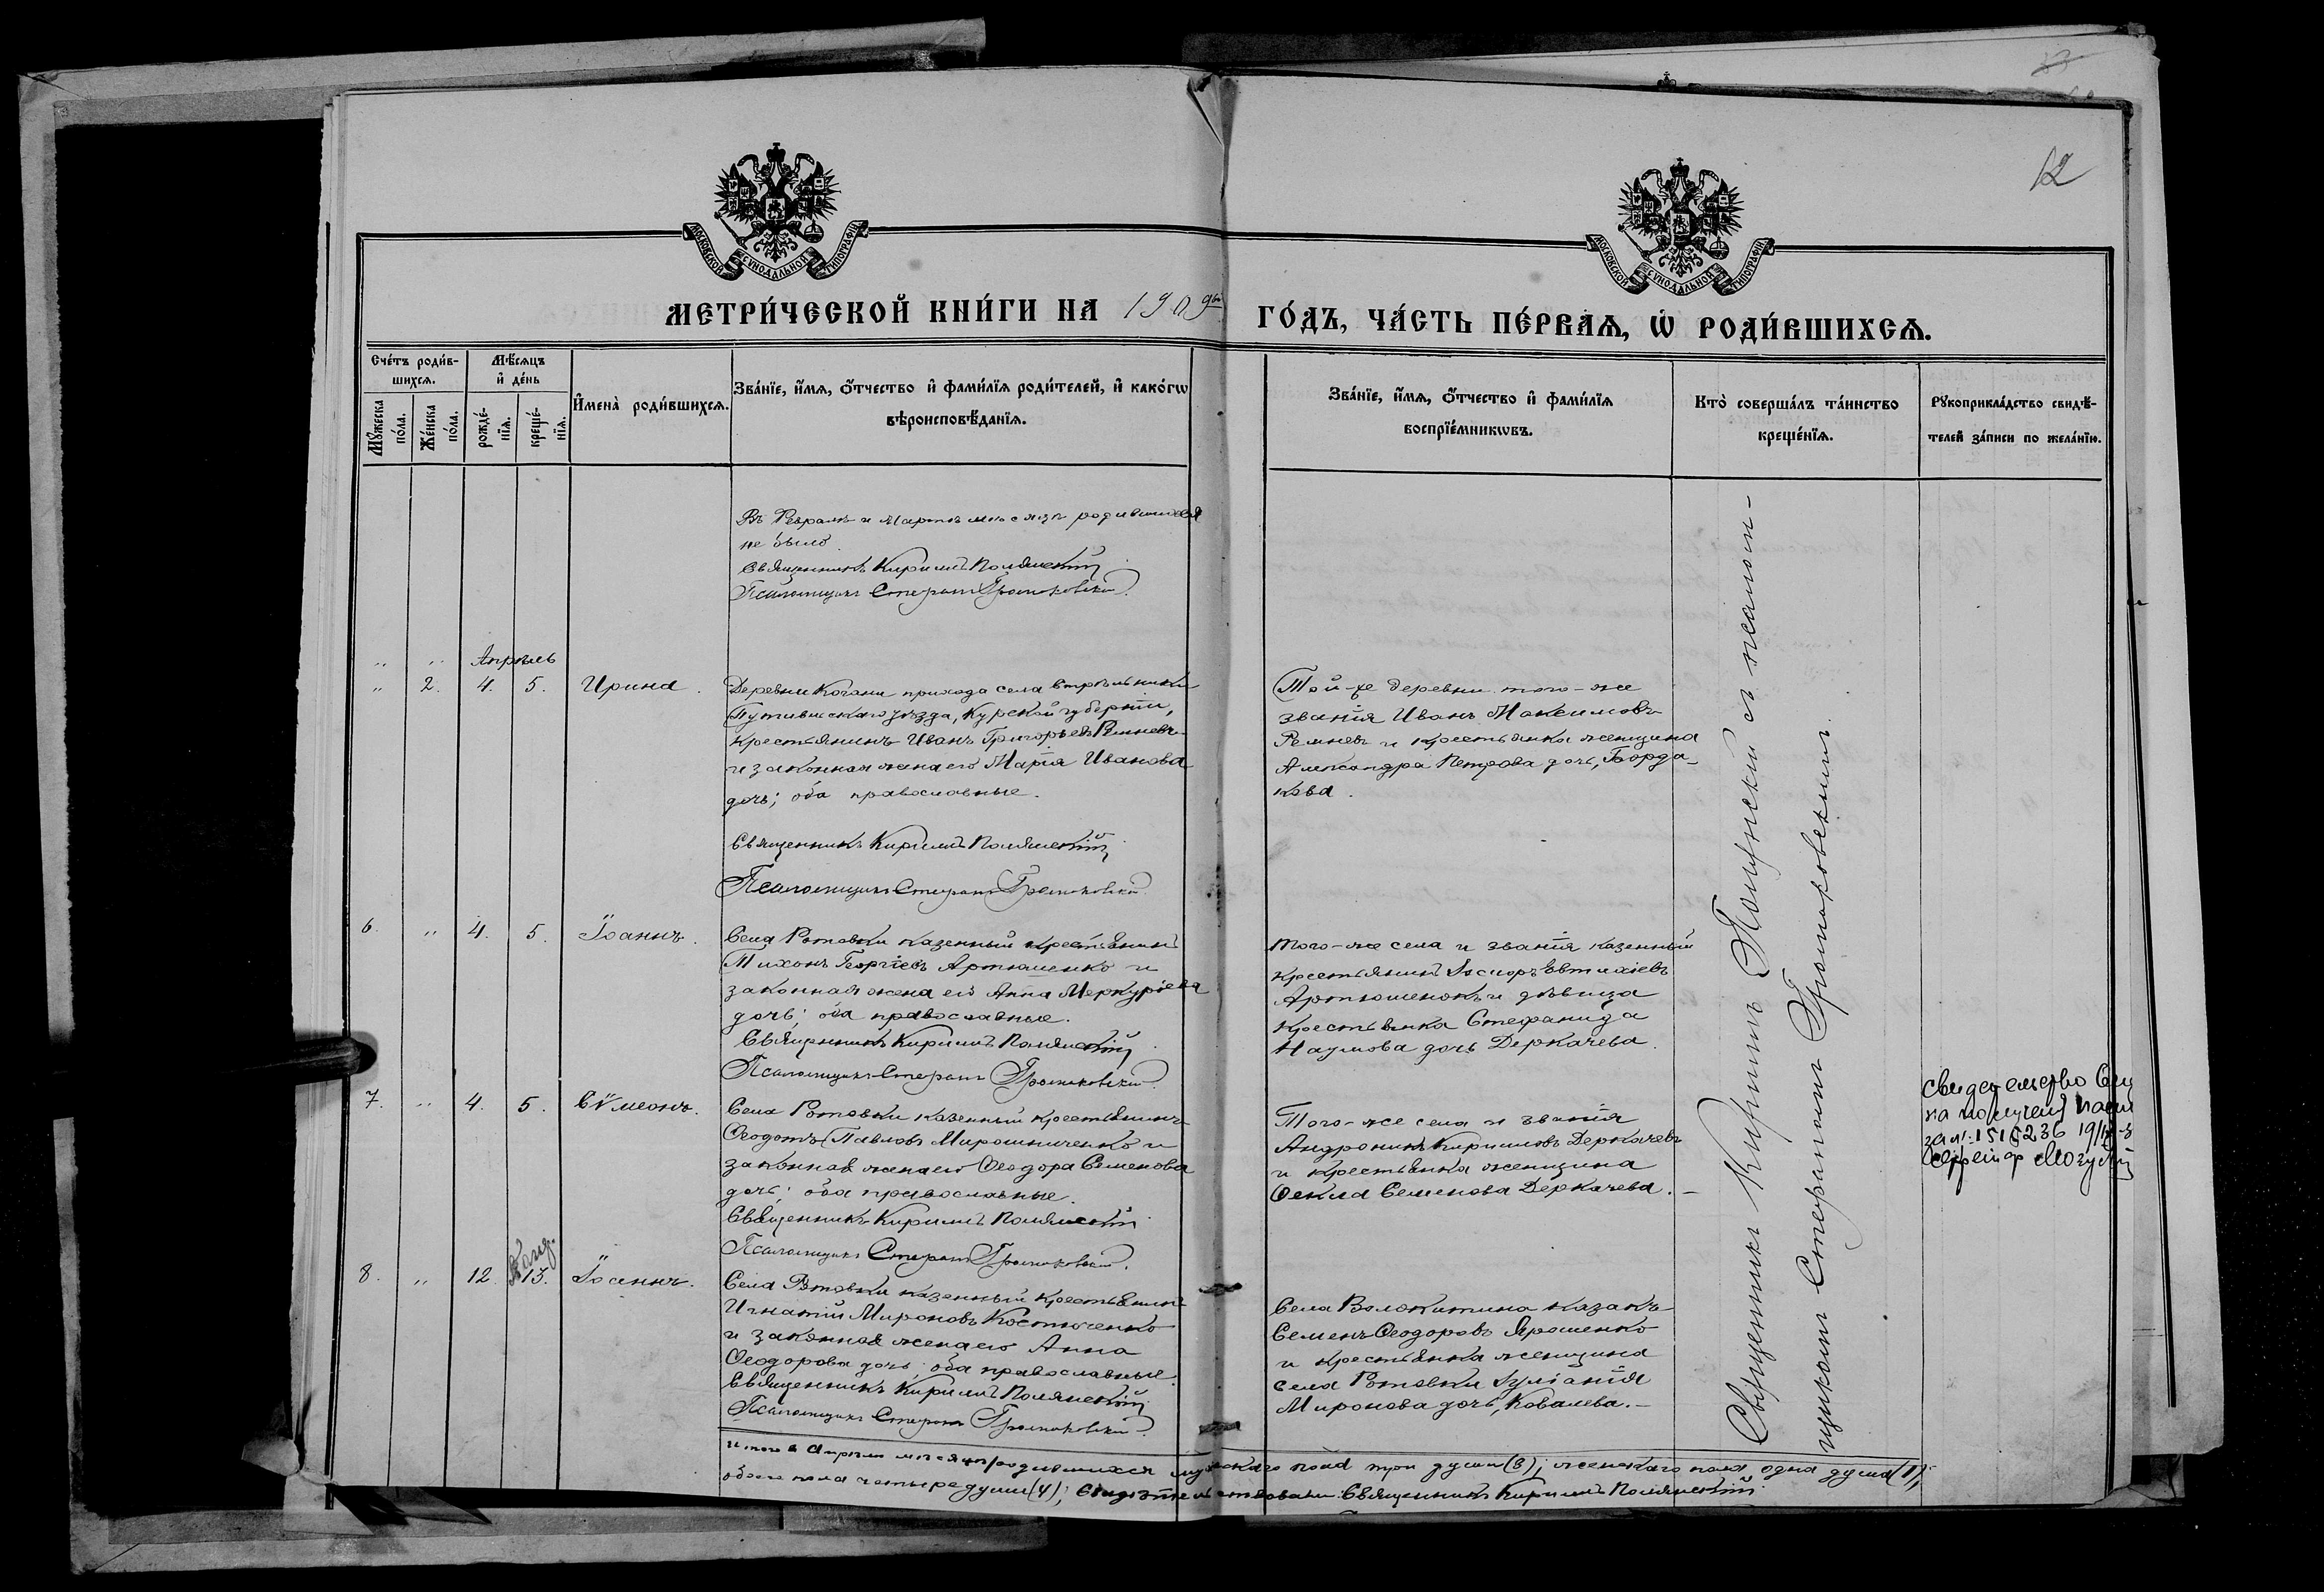 12
МОСКОВСКОЙ СѴНОДАЛЬНОЙ ТИПОГРАФІИ
МОСКОВСКОЙ СѴНОДАЛЬНОЙ ТИПОГРАФІИ
МЕТРИ́ЧЕСКОЙ КНИ́ГИ НА 1909й ГО́ДЪ, ЧА́СТЬ ПЕ́РВАѦ, Ѡ҆ РОДИ́ВШИХСѦ.
Сче́тъ роди́в-
шихсѧ.
Мꙋ́жеска
по́ла.
Же́нска
по́ла.
Мѣ́сѧцъ
и҆ де́нь
рожде́-
нїѧ.
креще́-
нїѧ.
И҆мена̀ роди́вшихсѧ.
Зва́нїе, и҆́мѧ, ѻ҆́тчество и҆ фами́лїѧ роди́телей, и҆ како́гѡ
вѣроисповѣ́данїѧ.
Зва́нїе, и҆́мѧ, ѻ҆́тчество и҆ фами́лїѧ
воспрїе́мникѡвъ.
Кто̀ соверша́лъ та́инство
креще́нїѧ.
Рꙋкоприкла́дство свидѣ́-
телей за́писи по жела́нїю.
Въ Февралѣ и Мартѣ мѣсяцѣ родившихся
не было
Священникъ Кириллъ Полянскій
Псаломщикъ Стефанъ Громаковскій.
" " Апрѣль
" 2. 4. 5. Ирина.
Деревни Кочани прихода села Стрѣльники
Путивльскаго уѣзда, Курской губерніи,
крестьянинъ Иванъ Григорьевъ Ремневъ
и законная жена его Марія Иванова
дочь; оба православные.
Священникъ Кириллъ Полянскій
Псаломщикъ Стефанъ Громаковскій
Той-же деревни того-же
званія Иванъ Максимовъ
Ремневъ и крестьянка женщина
Александра Петрова дочь, Борда-
кова.
6. " 4. 5. Іоаннъ.
Села Ротовки казенный крестьянинъ
Тихонъ Георгіевъ Артюшенко и
законная жена его Анна Меркуріева
дочь; оба православные.
Священникъ Кириллъ Полянскій
Псаломщикъ Стефанъ Громаковскій
Того-же села и званія казенный
крестьянинъ Евтихіевъ
Артюшенокъ и дѣвица
крестьянка Стефанида
Наумова дочь Деркачева.
7. " 4. 5. Сѵмеонъ.
Села Ротовки казенный крестьянинъ
Ѳеодотъ Павловъ Мирошниченко и
законная жена его Ѳеодора Семенова
дочь; оба православные.
Священникъ Кириллъ Полянскій
Псаломщикъ Стефанъ Громаковскій.
Того-же села и званія
Андроникъ Кирилловъ Деркачевъ
и крестьянка женщина
Ѳекла Семенова Деркачева.-
на
8. " 12. 13. Іосифъ.
Села Ротовки казенный крестьянинъ
Игнатій Мироновъ Костюченко
и законная жена его Анна
Ѳеодорова дочь; оба православные.
Священникъ Кириллъ Полянскій
Псаломщикъ Стефанъ Громаковскій
Села Волокитина казакъ
Семенъ Ѳеодоровъ Ярошенко
и крестьянка женщина
села Ротовки Іуліанія
Миронова дочь, Ковалева.-
Священникъ Кириллъ Полянскій съ псалом-
щикомъ Стефаномъ Громаковскимъ.
Итого в Апрѣлѣ мѣсяцѣ родившихся мужескаго пола три души (3); женскаго пола одна душа (1);
обоего пола четыре души (4); Свидѣтельствовали: Священникъ Кириллъ Полянскій